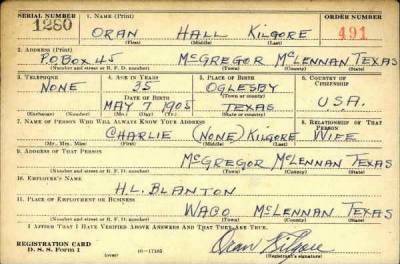 SERIAL NUMBER 1. NAME (Print) ORDER NUMBER
1280 ORAN HALL KILGORE 491
(First) (Middle) (Last)
2. ADDRESS (Print)
P.O. BOX 45 McGREGOR McLENNAN TEXAS
(Number and street or R. F. D. number) (Town) (County) (State)
3. TELEPHONE 4. AGE IN YEARS 5. PLACE OF BIRTH 6. COUNTRY OF CITIZENSHIP
NONE 35 OGLESBY
DATE OF BIRTH (Town or county)
MAY 7 1905 TEXAS U.S.A.
(Exchange) (Number) (Mo.) (Day) (Yr.) (State or country)
7. NAME OF PERSON WHO WILL ALWAYS KNOW YOUR ADDRESS 8. RELATIONSHIP OF THAT PERSON
CHARLIE (NONE) KILGORE WIFE
(Mr., Mrs., Miss) (First) (Middle) (Last)
9. ADDRESS OF THAT PERSON
McGREGOR McLENNAN TEXAS
(Number and street or R. F. D. number) (Town) (County) (State)
10. EMPLOYER'S NAME
H.L. BLANTON
11. PLACE OF EMPLOYMENT OR BUSINESS
WACO McLENNAN TEXAS
(Number and street or R. F. D. number) (Town) (County) (State)
I AFFIRM THAT I HAVE VERIFIED ABOVE ANSWERS AND THAT THEY ARE TRUE.
Oran Kilgore
REGISTRATION CARD
D. S. S. Form 1 (over) 16—17105 (Registrant's signature)